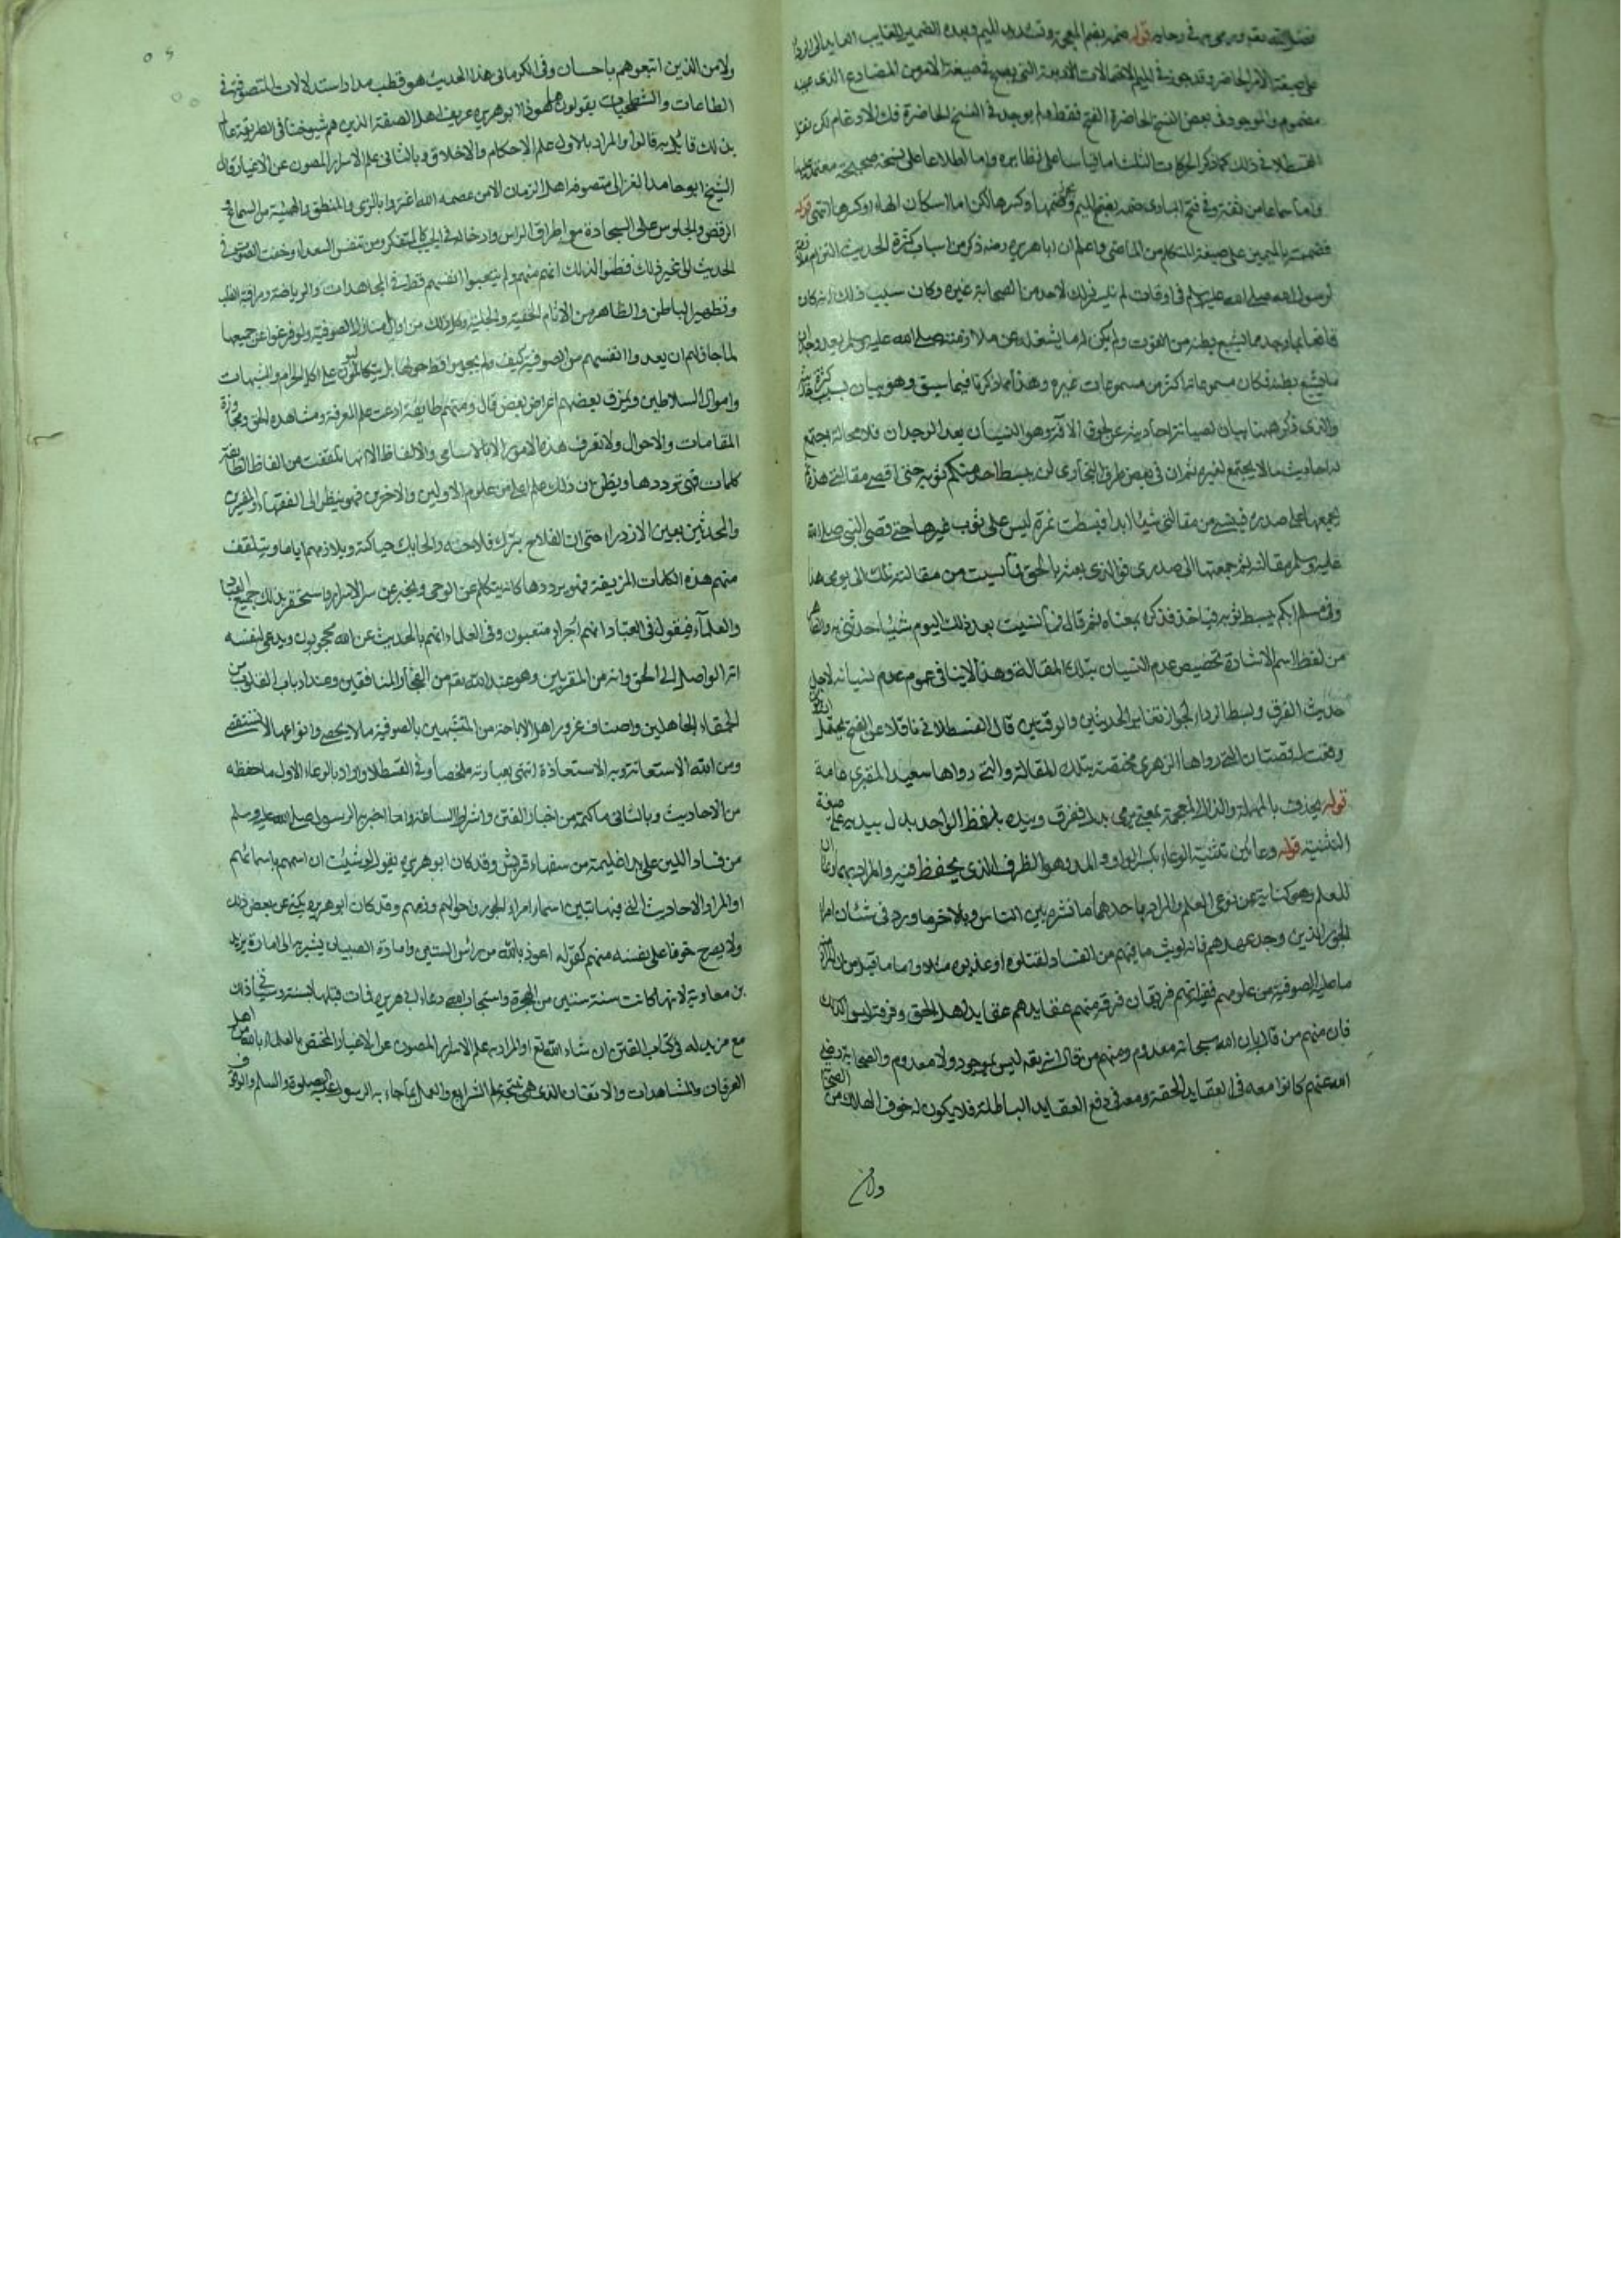 قوله ضمه بضم المعجمة وتشديد الميم وبعده الضمير الغايب العايد الى
على صيغة الامر الحاضر وقد جوز في الميم الاحتمالات الاربعة التي في صيغة الامر من المضارع الذي عينه
مضموم والموجود في بعض النسخ الحاضرة الفتح فقط ولم يوجد في النسخ الحاضرة فك الادغام لكن نقل
القسطلاني ذلك كما ذكر الحركات الثلث اما قياسا على نظايره واما اطلاعا على نسخة صحيحة معتمد عليها
واما سماعا من ثقة وفي فتح الباري ضمه بفتح الميم وضمها وكسرها لكن اما اسكان الهاء او كسرها انتهى قوله
فضممته بالميمين على صيغة المتكلم من الماضي واعلم ان ابا هريرة رضه ذكر من اسباب كثرة الحديث التزام
لرسول الله صلى الله عليه وسلم في اوقات لم يتيسر ذلك لاحد من الصحابة غيره وكان سبب ذلك انه كان
قانعا بما وجد مما يشبع بطنه من القوت ولم يكن له ما يشغله عن ملازمته صلى الله عليه وسلم بعد وجدان
ما يشبع بطنه فكان مسموعاته اكثر من مسموعات غيره وهذا ما ذكرنا فيما سبق وهو بيان سبب كثرة
والذي ذكر ههنا بيان لصيانة احاديثه عن لحوق الآفة وهو النسيان بعد الوجدان فلا محالة اجتمع
له احاديث ما لا يجتمع لغيره ثم ان في بعض طرق البخاري لن يبسط احد منكم ثوبه حتى اقضي مقالتي هذه
يجمعها الى صدره فينسى من مقالتي شيئا ابدا فبسطت نمرة ليس على ثوب غيرها حتى قضى النبي صلى الله
عليه وسلم مقالته ثم جمعتها الى صدري فوالذي بعثه بالحق ما نسيت من مقالته تلك الى يومي هذا
وفي مسلم ايكم يبسط ثوبه فياخذ فذكره بمعناه ثم قال فما نسيت بعد ذلك اليوم شيئا حدثني به
من لفظ اسم الاشارة تخصيص عدم النسيان بتلك المقالة وهذا لا ينافي عموم عدم نسيانه لاجل
حديث الغرف وبسط الرداء لجواز تغاير الحديثين والوقتين قال القسطلاني ناقلا عن الفتح يحتمل ان
وقعت له قصتان التي رواها الزهري مختصة بتلك المقالة والتي رواها سعيد المقبري عامة
قوله يحذف بالمهملة والذال المعجمة بمعنى يرمي بدل فغرف وبيده بلفظ الواحد بدل بيديه على صيغة
التثنية قوله وعائين تثنية الوعاء بكسر الواو والمد وهو الظرف الذي يحفظ فيه والمراد بهما
للعلم وهو كناية عن نوعي العلم والمراد باحدهما ما نشره بين الناس وبالاخر ما ورد في شان امراء
الجور الذين وجد عهدهم فانه لو بث ما فيهم من الفساد لقتلوه او عذبوه مثلا واما ما قيل من ان المراد
ما عليه الصوفية من علومهم ففيه انهم فريقان فرقة منهم عقايدهم عقايد اهل الحق وفرقة ليسوا كذلك
فان منهم من قال بان الله سبحانه معدوم ومنهم من قال انه ليس بموجود ولا معدوم والصحابة رضي
الله عنهم كانوا معه في العقايد الحقة ومعه في دفع العقايد الباطلة فلا يكون له خوف الهلاك من الصحابة
ولا من
ولا من الذين اتبعوهم باحسان وفي الكرماني هذا الحديث هو قطب مدار استدلالات المتصوفة في
الطاعات والشطحيات يقولون هذا ابو هريرة عريف اهل الصفة الذين هم شيوخنا في الطريقة عالم
بذلك قائل به قالوا والمراد بالاول علم الاحكام والاخلاق وبالثاني علم الاسرار المصون عن الاغيار وقال
الشيخ ابو حامد الغزالي متصوفة اهل الزمان الا من عصمه الله اغتروا بالزي والمنطق والهيئة من السماع و
الرقص والجلوس على السجادة مع اطراق الراس وادخاله في الجيب كالمتفكر ومن تنفس الصعداء وخفت الصوت في
الحديث الى غير ذلك فظنوا لذلك انهم منهم ولم يتعبوا انفسهم قط في المجاهدات والرياضة ومراقبة القلب
وتطهير الباطن والظاهر من الاثام الخفية والجلية وكل ذلك من اوائل منازل الصوفية ولو فرغوا عن جميعها
لما جاز لهم ان يعدوا انفسهم من الصوفية كيف ولم يحوموا قط حولها بل يتكالبون على اكل الحرام والشبهات
واموال السلاطين ويمزق بعضهم اعراض بعض قال ومنهم طايفة ادعت علم المعرفة ومشاهدة الحق ومجاوزة
المقامات والاحوال ولا تعرف هذه الامور الا بالاسامي والالفاظ الا انها تلقفت من الفاظ الطايفة
كلمات فهي ترددها ويظن ان ذلك علم اعلى من علوم الاولين والاخرين فهو ينظر الى الفقهاء والمفسرين
والمحدثين بعين الازدراء حتى ان الفلاح يترك فلاحته والحايك حياكته ويلازمهم اياما ويتلقف
منهم هذه الكلمات المزيفة فهو يرددها كانه يتكلم عن الوحي ويخبر عن سر الاسرار ويستحقر بذلك جميع العباد
والعلماء فيقول في العباد انهم اجراء متعبون وفي العلماء انهم بالحديث عن الله محجوبون ويدعي لنفسه
انه الواصل الى الحق وانه من المقربين وهو عند الله من الفجار والمنافقين وعند ارباب القلوب من
الحمقاء الجاهلين واصناف غرور اهل الاباحة من المتشبهين بالصوفية ما لا يحصى وانواعها لا تستقصى
ومن الله الاستعانة وبه الاستعاذة انتهى بعبارته ملخصا وفي القسطلاني واراد بالوعاء الاول ما حفظه
من الاحاديث وبالثاني ما كتمه من اخبار الفتن واشراط الساعة وما اخبر به الرسول صلى الله عليه وسلم
من فساد الدين على يد اغيلمة من سفهاء قريش وقد كان ابو هريرة يقول لو شئت ان اسميهم باسمائهم
او المراد الاحاديث التي فيها تبيين اسماء امراء الجور واحوالهم وذمهم وقد كان ابو هريرة يكني عن بعض ذلك
ولا يصرح خوفا على نفسه منهم كقوله اعوذ بالله من راس الستين وامارة الصبيان يشير به الى امارة يزيد
بن معاوية لانها كانت سنة ستين من الهجرة واستجاب الله دعاء ابي هريرة فمات قبلها بسنة وسياتي ذلك
مع مزيد له في كتاب الفتن ان شاء الله تع او المراد به علم الاسرار المصون عن الاغيار المختص بالعلماء بالله من اهل
العرفان والمشاهدات والاتقان الذي هي نتيجة علم الشرايع والعمل بما جاء به الرسول عليه الصلوة والسلام والوقوف